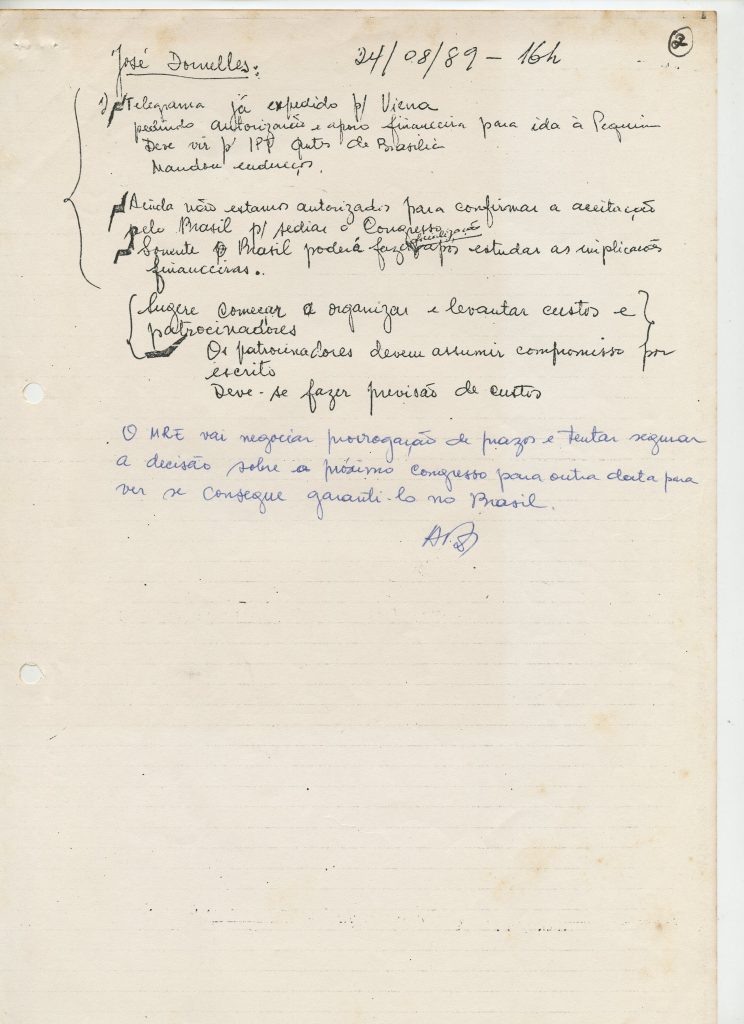 2
José Dornelles: 24/08/89 - 16h
1) Telegrama já expedido p/ Viena
pedindo autorização e apoio financeiro para ida à Pequim
Deve vir p/ antes de Brasília
Mandou endereços.
Ainda não estamos autorizados para confirmar a aceitação
pelo Brasil p/ sediar o Congresso
Somente o Brasil poderá fazer após estudar as implicações
financeiras..
Sugere começar a organizar e levantar custos e
patrocinadores
Os patrocinadores devem assumir compromisso por
escrito
Deve-se fazer previsão de custos
O MRE vai negociar prorrogação de prazos e tentar segurar
a decisão sobre o próximo congresso para outra data para
ver se consegue garanti-lo no Brasil.